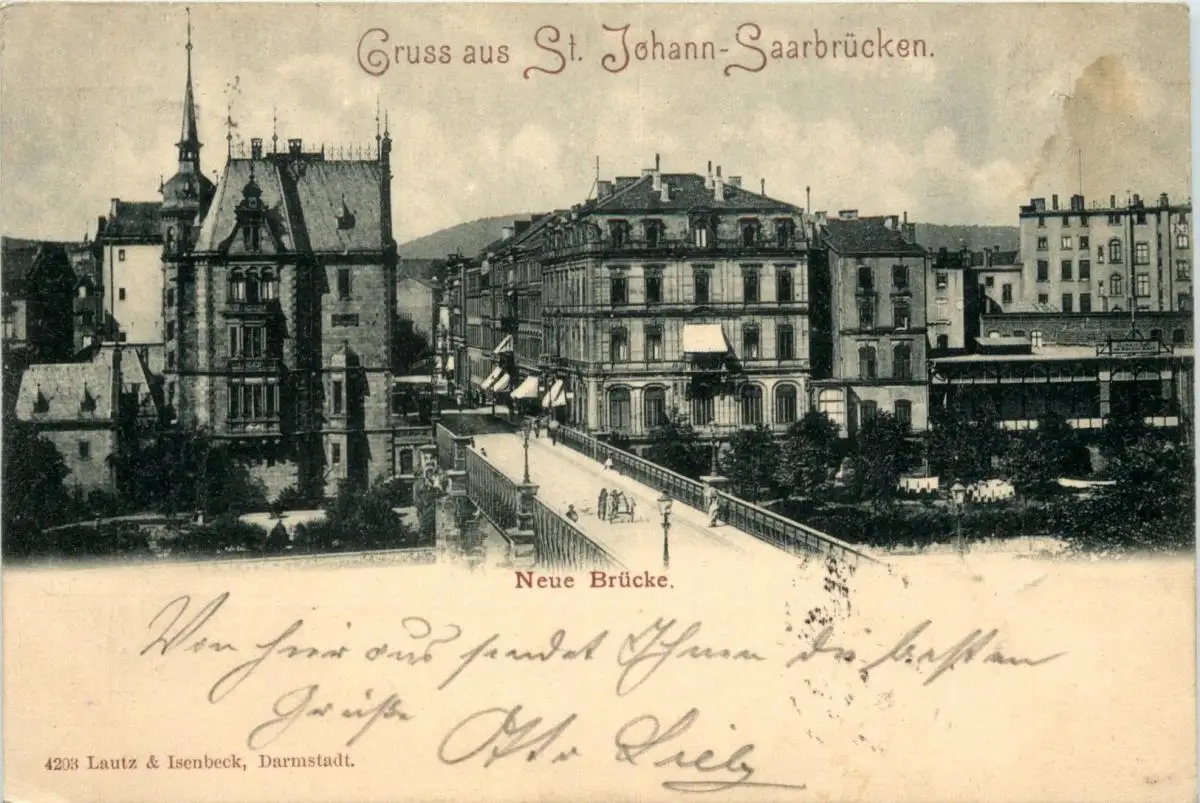 Gruss aus St. Johann-Saarbrücken.
Neue Brücke.
Von hier aus sendet Ihnen die besten
Grüße Otto Lieb
4203 Lautz & Isenbeck, Darmstadt.